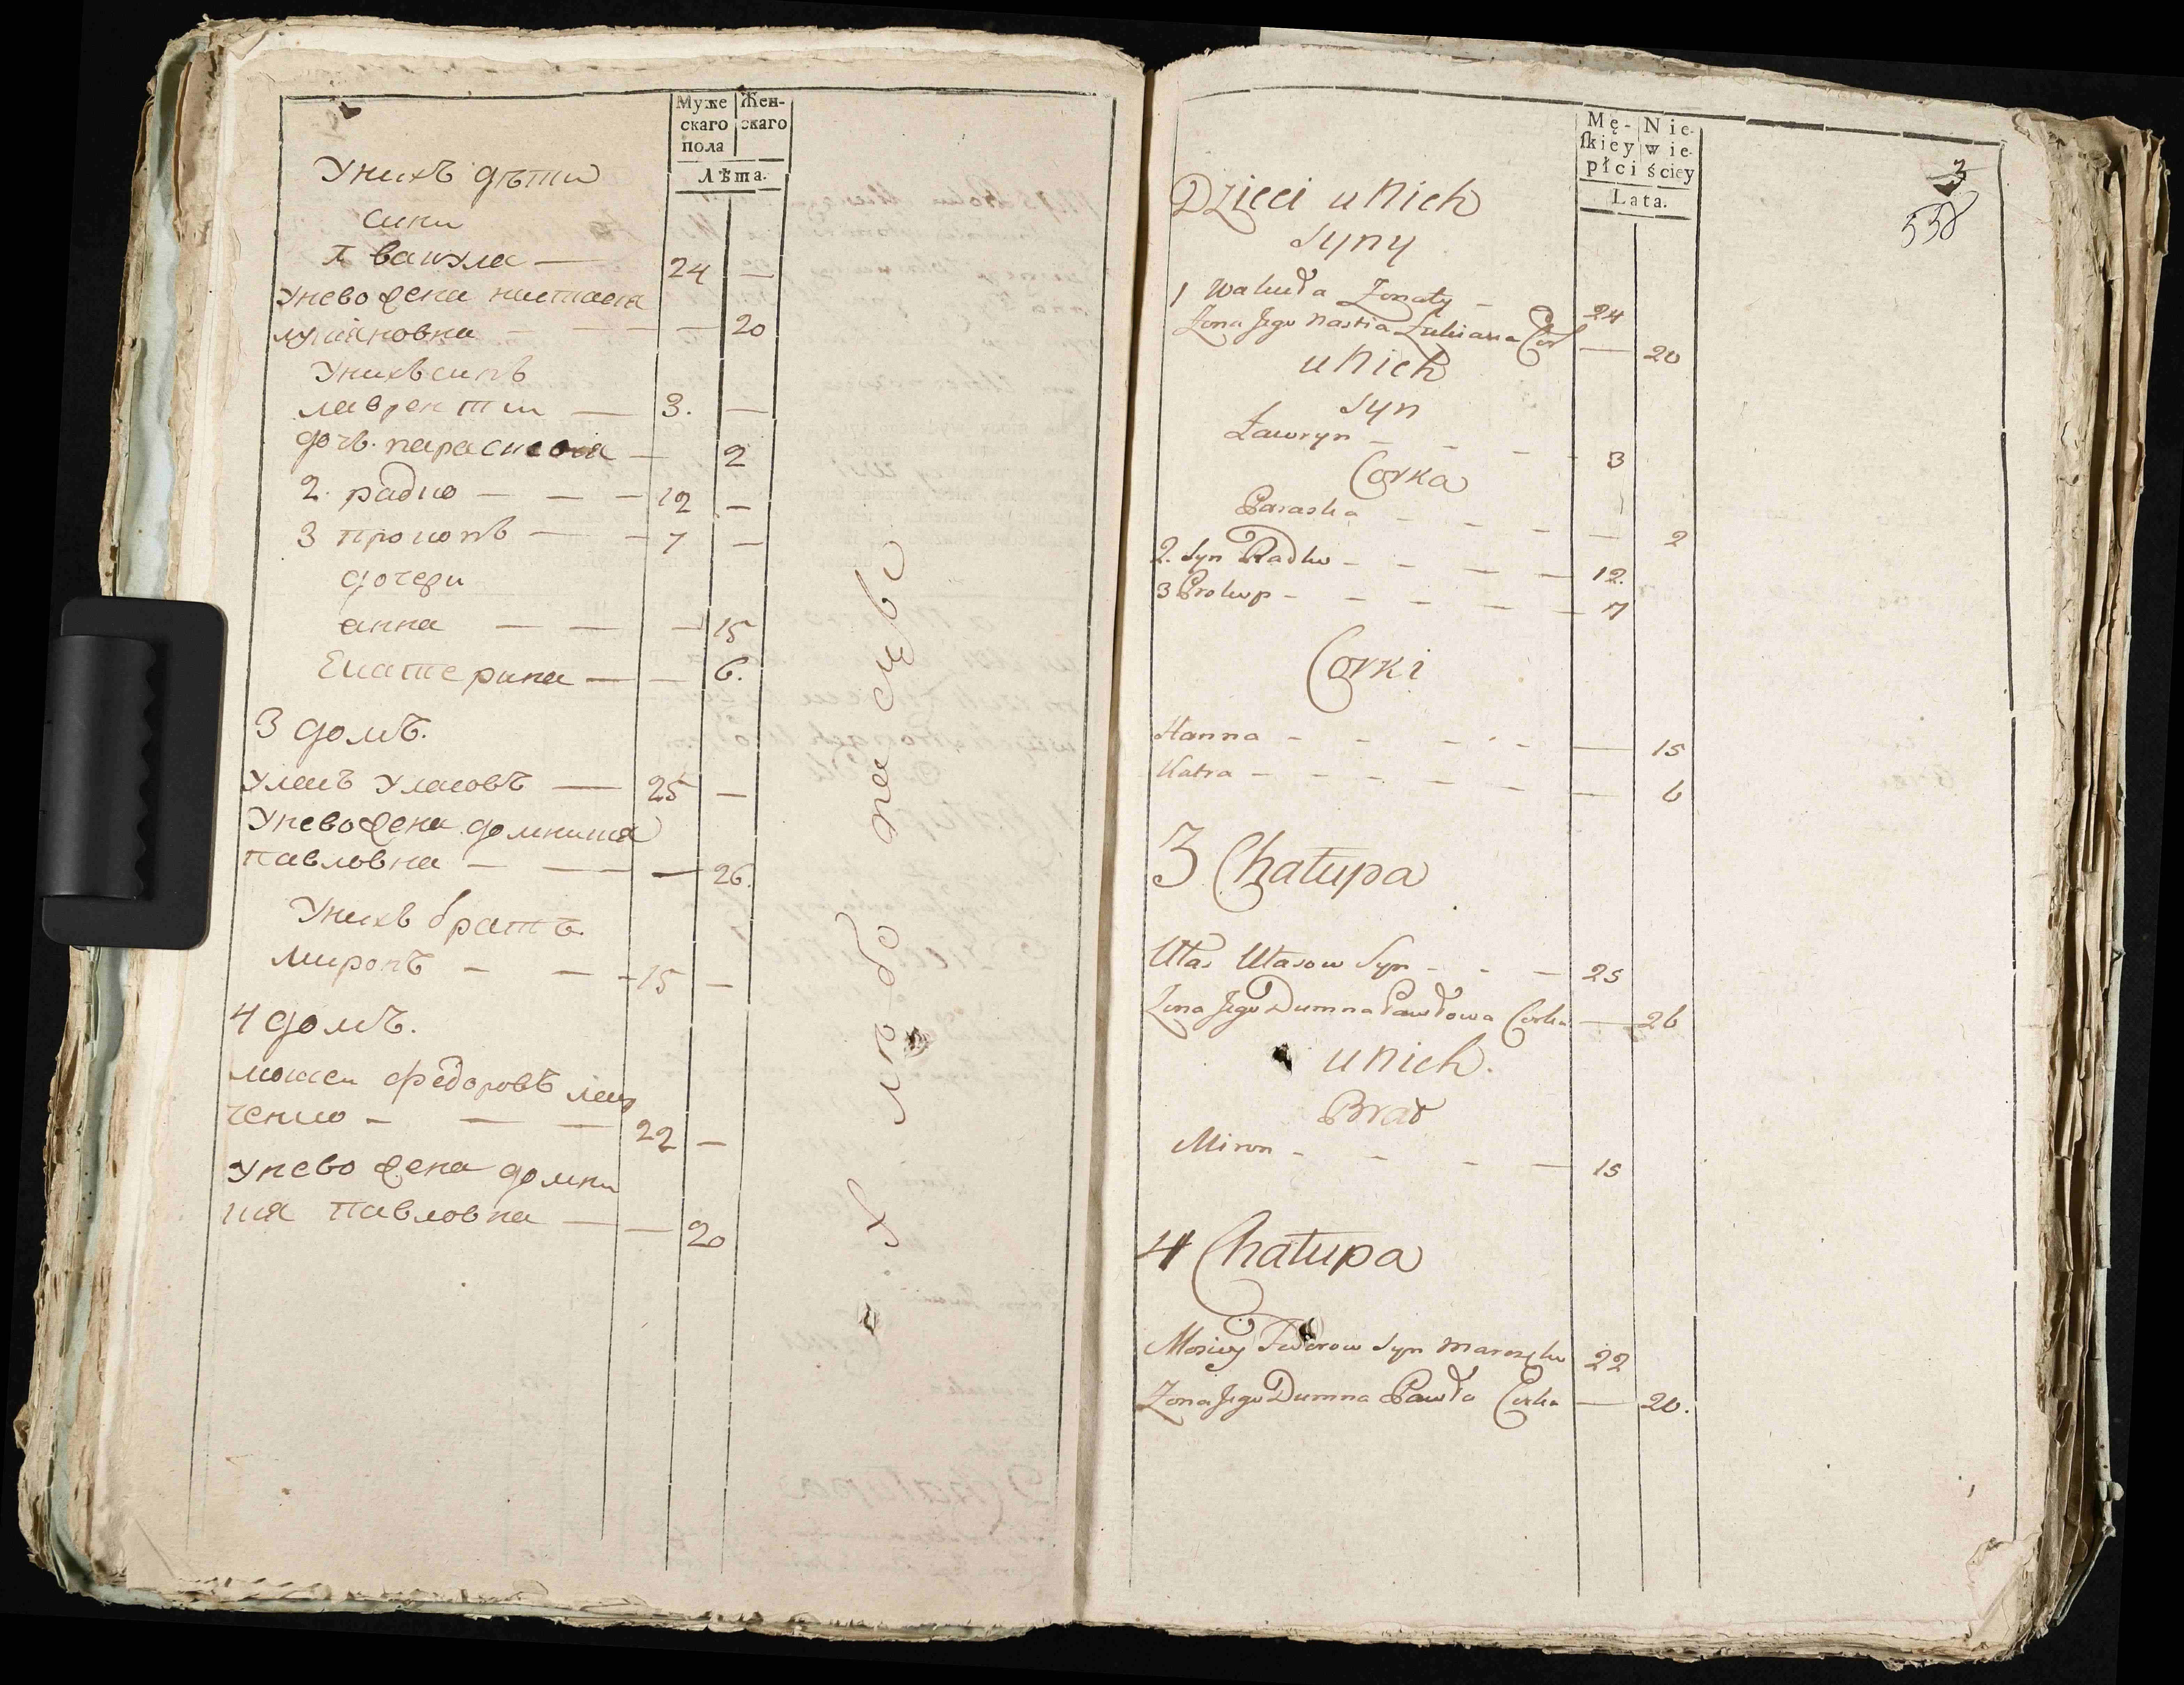 Муже Жен-
скаго скаго
пола
Лѣта.
Унихъ дѣти
сини
1 вакула — 24 —
унево жена настасия
лукияновна — — 20
Унихъ синъ
лаврентии — 3. —
дочь. параскевия — 2
2. радко — — — 12 —
3 прокопъ — — 7 —
дочери
анна — — — 15
Екатерина — — 6.
3 домъ.
уласъ уласовъ — 25 —
Унево жена домникия
павловна — — — 26.
Унихъ братъ
миронъ — — — 15 —
4 домъ.
мокеи федоровъ
ченко — — — 22 —
унево жена домни
кия павловна — — 20
Mę- Nie-
ſkiey wie-
płci ściey
Lata.
3
558
Dzieci u Nich
Syny
1 Wakuła Żonaty — 24
Żona Jego Nastia Łukiana Cor — 20
u Nich
Syn
Ławryn — — — 3
Corka
Paraska — — — — 2
2. Syn Radko — — — — 12.
3 Prokop — — — — — 7
Corki
Hanna — — — — — 15
Katra — — — — — 6
3 Chałupa
Ułas Ułasow Syn — — — 25
Żona Jego Dumna Pawłowa Corka — 26
u Nich.
Brat
Miron — — — — 15
4 Chałupa
Mosiey Fedorow Syn 22
Żona Jego Dumna Pawła Corka — 20.